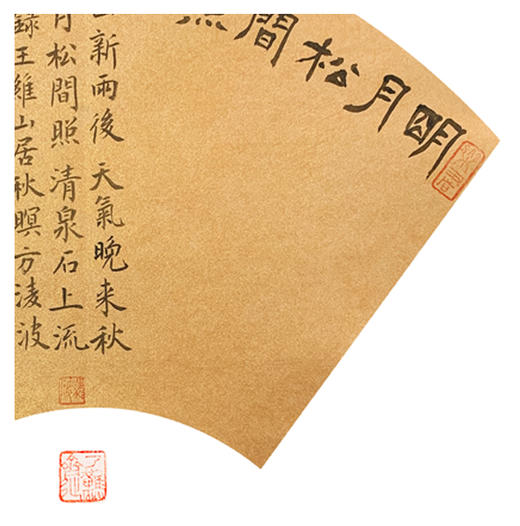 明月松間照
山新雨後天氣晚來秋
月松間照清泉石上流
錄王維山居秋暝方淩波